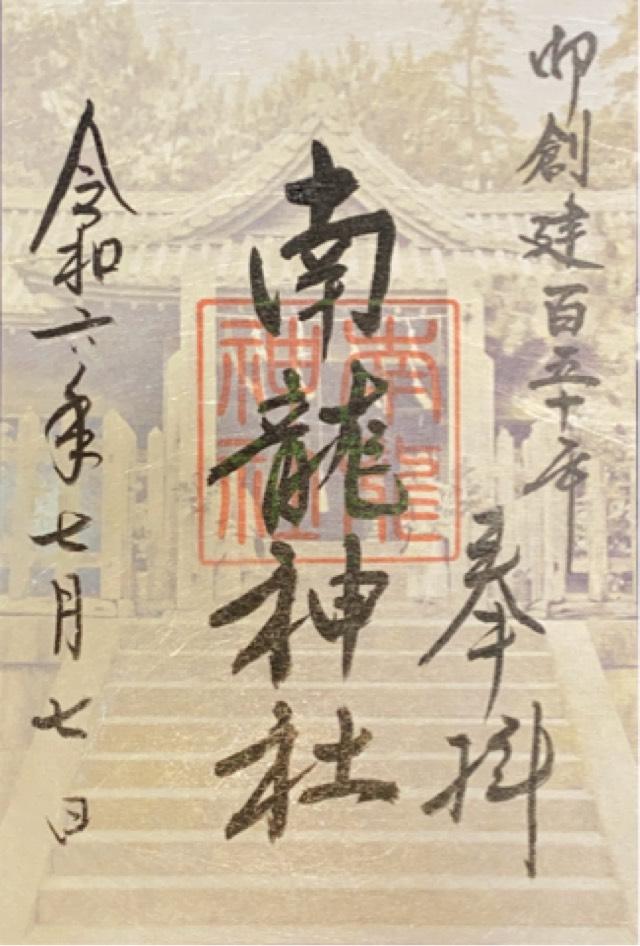 御創建百五十年
奉拝
南龍神社
南龍
神社
令和六年七月七日